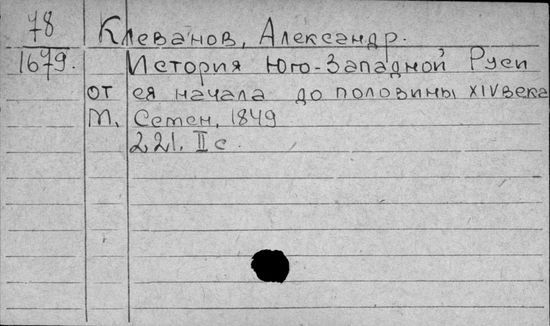 78
1679.
Клеванов, Александр.
История Юго-Западной Руси
от ея начала до половины XIV века
М. Семен, 1849
221. II с.